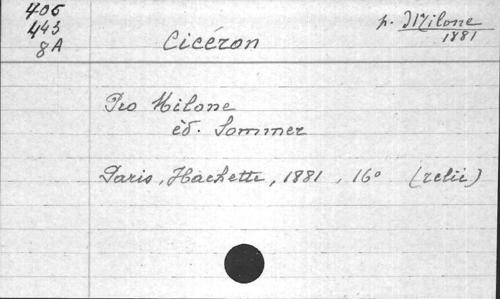 405
443
8A
Cicéron
p. Milone
1881
Pro Milone
éd. Sommer
Paris, Hachette, 1881, 16° (relié)